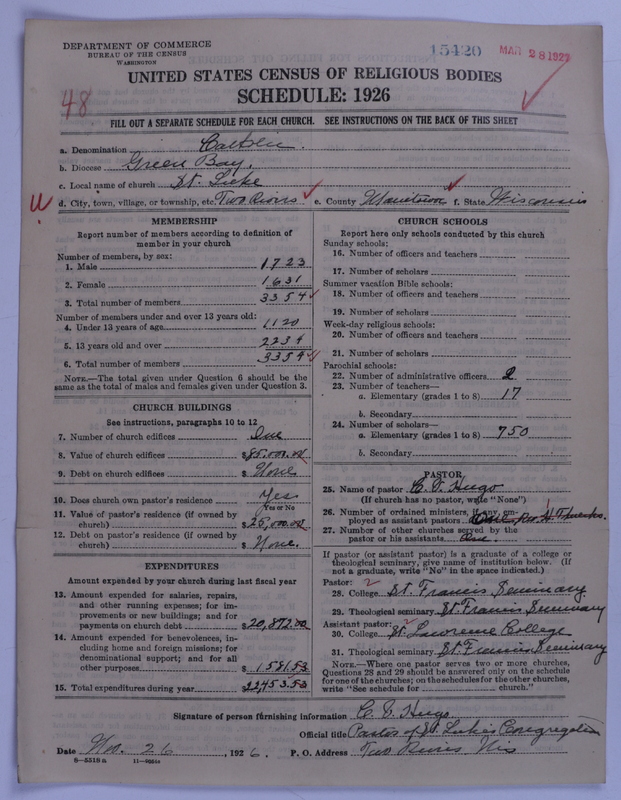 DEPARTMENT OF COMMERCE
BUREAU OF THE CENSUS
WASHINGTON
15420 MAR 28 1927
UNITED STATES CENSUS OF RELIGIOUS BODIES
48
SCHEDULE: 1926
FILL OUT A SEPARATE SCHEDULE FOR EACH CHURCH. SEE INSTRUCTIONS ON THE BACK OF THIS SHEET
a. Denomination
b. Diocese Green Bay.
c. Local name of church St. Luke
d. City, town, village, or township, etc. Two Rivers e. County Manitowoc f. State Wisconsin
MEMBERSHIP
Report number of members according to definition of member in your church
Number of members, by sex:
1. Male 1723
2. Female 1631
3. Total number of members 3354
Number of members under and over 13 years old:
4. Under 13 years of age 1120
5. 13 years old and over 2234
6. Total number of members 3354
NOTE.—The total given under Question 6 should be the same as the total of males and females given under Question 3.
CHURCH BUILDINGS
See instructions, paragraphs 10 to 12
7. Number of church edifices One
8. Value of church edifices $85,000.00
9. Debt on church edifices $ None
10. Does church own pastor's residence Yes
Yes or No
11. Value of pastor's residence (if owned by church) $25,000.00
12. Debt on pastor's residence (if owned by church) $ None.
EXPENDITURES
Amount expended by your church during last fiscal year
13. Amount expended for salaries, repairs, and other running expenses; for improvements or new buildings; and for payments on church debt $20,872.00
14. Amount expended for benevolences, including home and foreign missions; for denominational support; and for all other purposes $1581.53
15. Total expenditures during year $22,453.53
CHURCH SCHOOLS
Report here only schools conducted by this church
Sunday schools:
16. Number of officers and teachers
17. Number of scholars
Summer vacation Bible schools:
18. Number of officers and teachers
19. Number of scholars
Week-day religious schools:
20. Number of officers and teachers
21. Number of scholars
Parochial schools:
22. Number of administrative officers 2
23. Number of teachers—
a. Elementary (grades 1 to 8) 17
b. Secondary
24. Number of scholars—
a. Elementary (grades 1 to 8) 750
b. Secondary
PASTOR
25. Name of pastor Hugo
(If church has no pastor, write "None")
26. Number of ordained ministers, if any, employed as assistant pastors
27. Number of other churches served by the pastor or his assistants One.
If pastor (or assistant pastor) is a graduate of a college or theological seminary, give name of institution below. (If not a graduate, write "No" in the space indicated.)
Pastor:
28. College St. Francis Seminary
29. Theological seminary St. Francis Seminary
Assistant pastor:
30. College St. Lawrence College
31. Theological seminary St. Francis Seminary
NOTE.—Where one pastor serves two or more churches, Questions 28 and 29 should be answered only on the schedule for one of the churches; on the schedules for the other churches, write "See schedule for ______ church."
Signature of person furnishing information Hugo
Official title Pastor of St. Luke's Congregation
Date Nov. 26, 1926. P. O. Address Two Rivers Wis